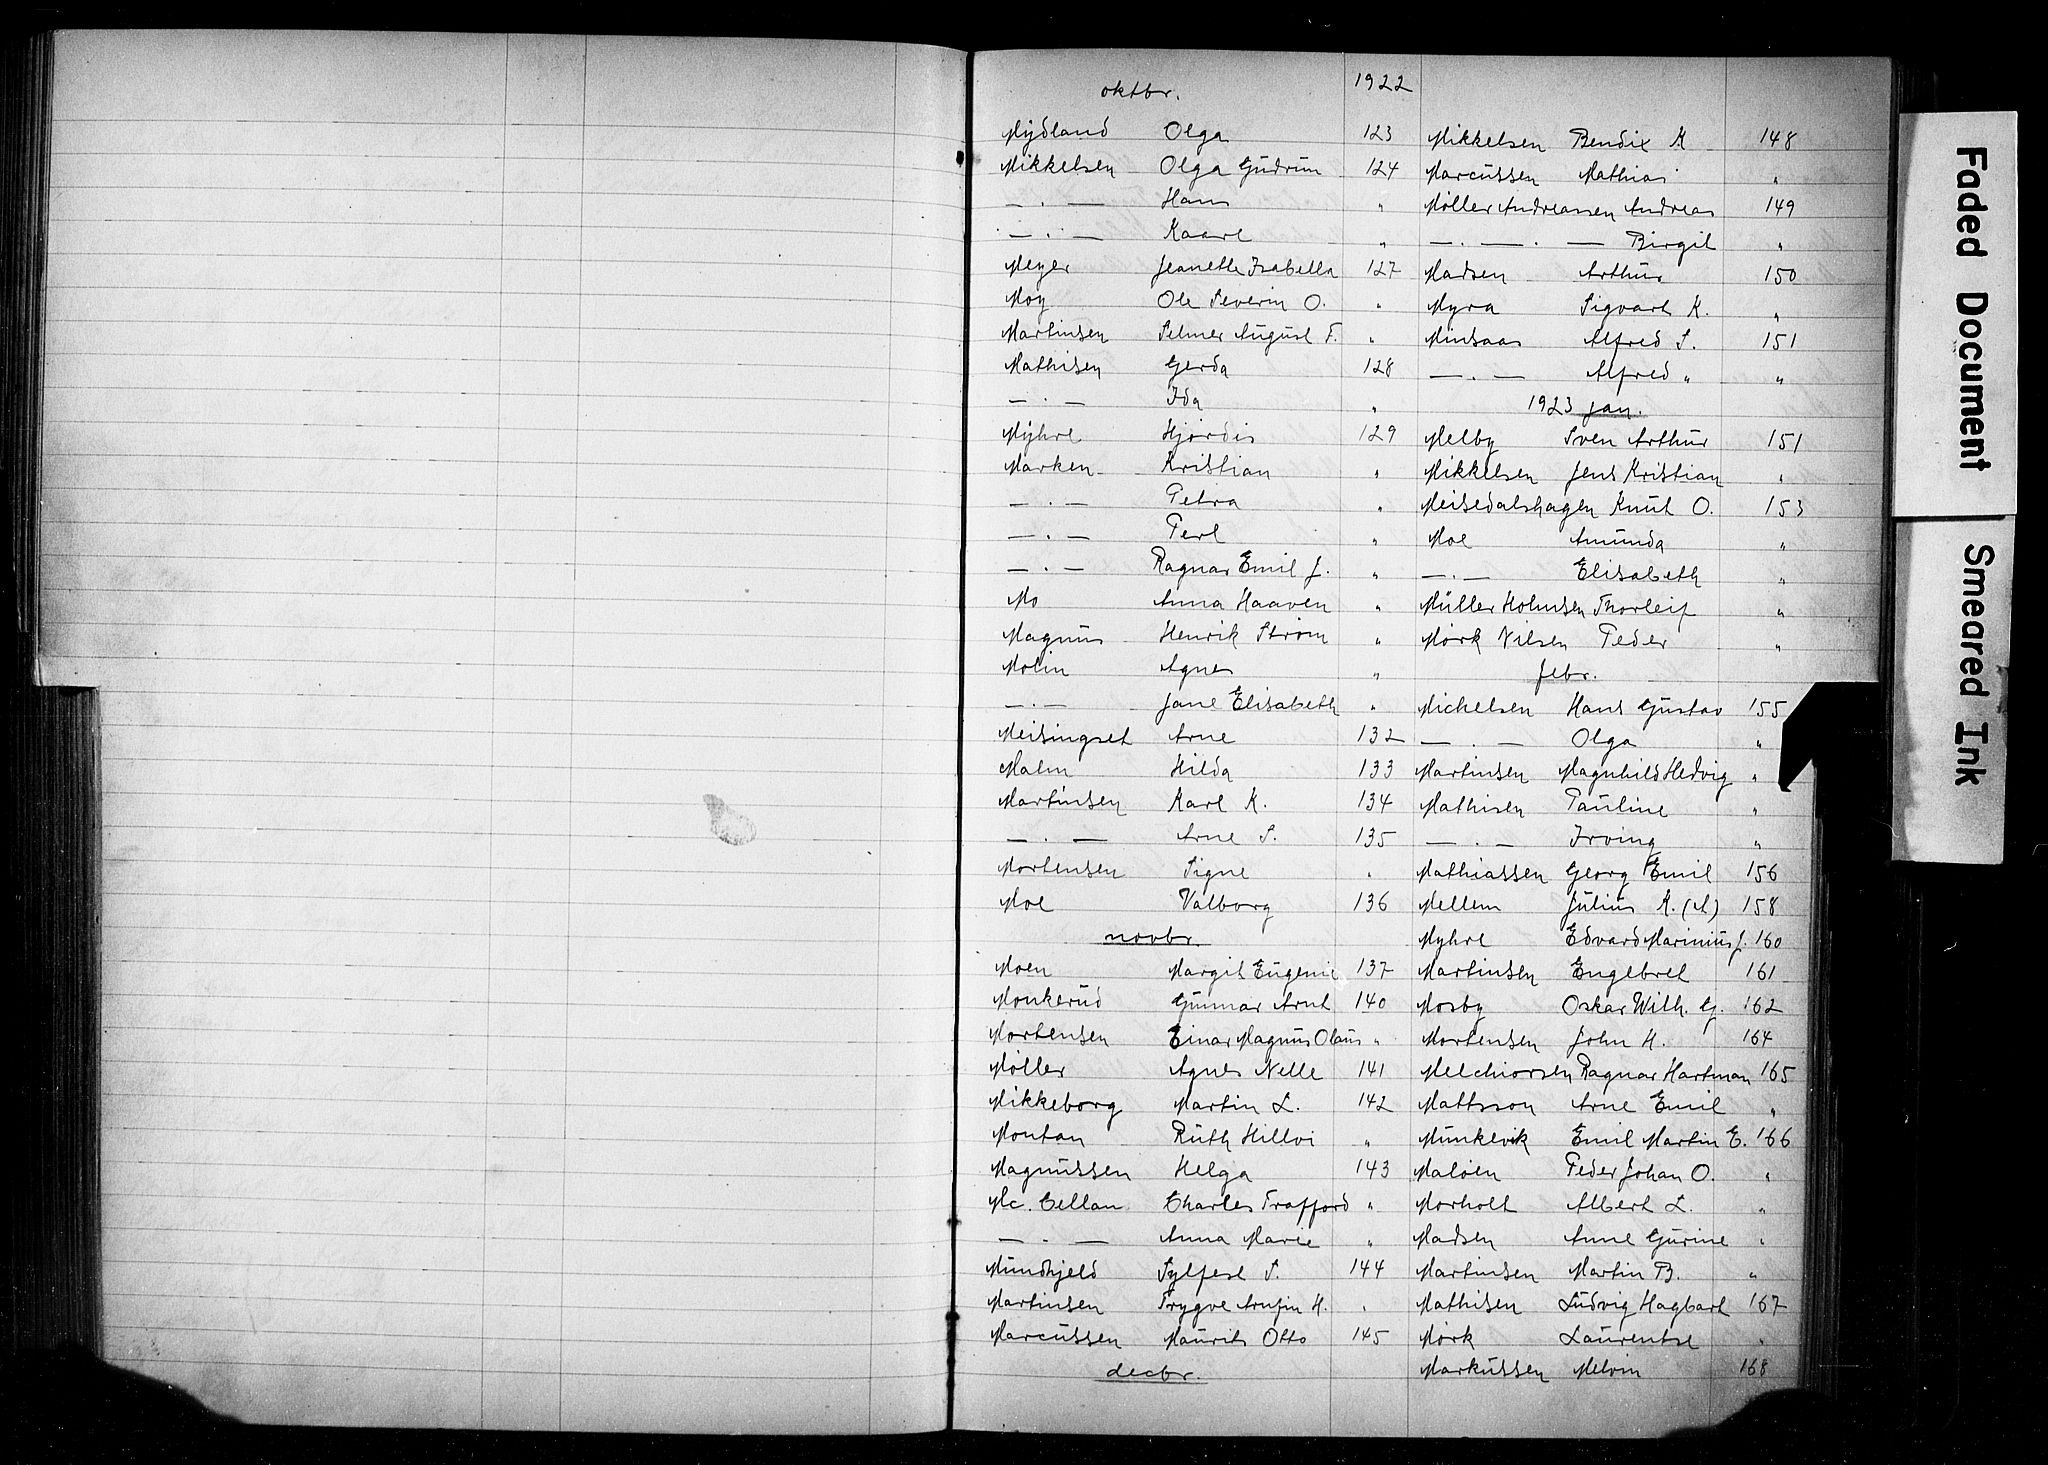 oktbr. 1922
Mydland Olga 123
Mikkelsen Olga Gudrun 124
— . — Hans "
— . — Kaare "
Meyer Jeanette Isabella 127
Moy Ole Severin O. "
Martinsen Selmer August F. "
Mathisen Gerda 128
— . — Ida "
Myhre Hjørdis 129
Marken Kristian "
— . — Petra "
— . — Perl "
— . — Ragnar Emil J. "
Mo Anna Haaven "
Magnus Henrik Strøm "
Molin Agnes "
— . — Jane Elisabeth "
Meisingset Arne 132
Malm Hilda 133
Martinsen Karl K. 134
— . — Arne S. 135
Mortensen Signe "
Moe Valborg 136
novbr.
Moen Margit Eugenie 137
Monkerud Gunnar Arnt 140
Mortensen Einar Magnus Olaus "
Møller Agnes Nelle 141
Mikkeborg Martin L. 142
Montan Ruth Hillvi "
Magnussen Helga 143
Mc. Cellan Charles Trafford "
— . — Anna Marie "
Mundhjeld Sylfest S. 144
Martinsen Trygve Arnfin H. "
Marcussen Maurits Otto 145
decbr.
Mikkelsen Bendix K 148
Marcussen Mathias "
Møller Andreassen Andreas 149
— . — . — Birgit "
Madsen Arthur 150
Myra Sigvart K. "
Minsaas Alfred S. 151
— . — Alfred " "
1923 jan.
Melby Sven Arthur 151
Mikkelsen Jens Kristian "
Meisedalshagen Knut O. 153
Moe Amunda "
— . — Elisabeth "
Müller Holmsen Thorleif "
Mørk Nilsen Peder "
febr.
Michelsen Hans Gustav 155
— . — Olga "
Martinsen Magnhild Hedvig "
Mathisen Pauline "
— . — Irving "
Mathiassen Georg Emil 156
Mellem Julius K. (A) 158
Myhre Edvard Marinius J. 160
Martinsen Engebret 161
Mosby Oskar Wilh. G. 162
Mortensen John H. 164
Melchiorsen Ragnar Hartman 165
Mattsson Arne Emil "
Munkevik Emil Martin E. 166
Maløen Peder Johan O. "
Morholt Albert L. "
Madsen Anne Gurine "
Martinsen Martin B. "
Mathisen Ludvig Hagbart 167
Mørk Laurentse "
Markussen Melvin 168
Faded Document
Smeared Ink